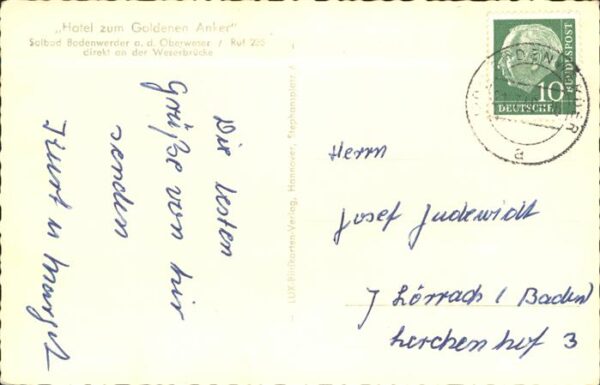 „Hotel zum Goldenen Anker“
Solbad Bodenwerder a. d. Oberweser / Ruf 225
direkt an der Weserbrücke
Die besten
Grüße von hir
senden
u Margit
LUX-Filmkarten-Verlag, Hannover, Stephanusplatz
10
BUNDESPOST
DEUTSCHE
BODENWERDER
a
Herrn
Josef Judewidt
Lörrach / Baden
Lerchenhof 3